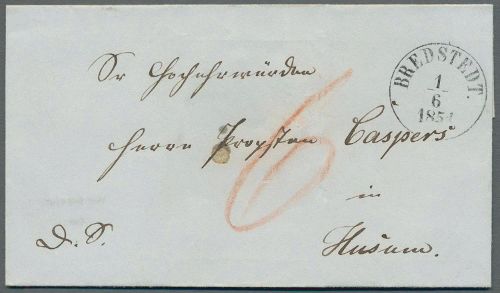 Sr Hochehrwürden
Herrn Propsten Caspers
in
Husum.
D. S.
BREDSTEDT.
1
6
1851
6